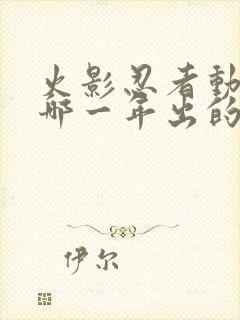 火影忍者動
哪一年出的
伊尔